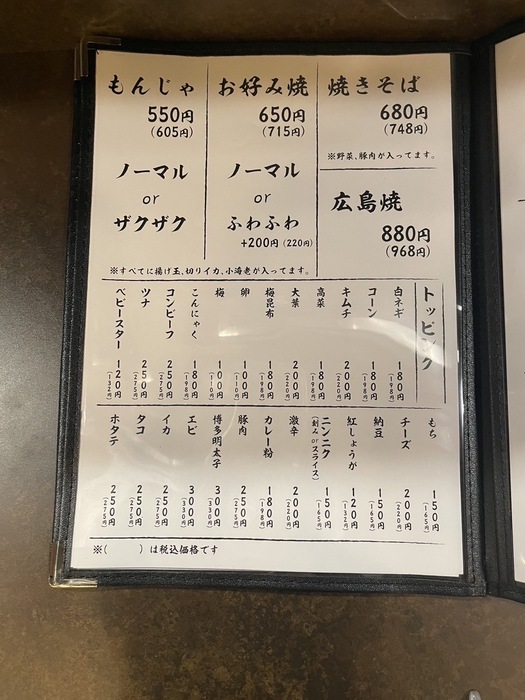 もんじゃ
550円
(605円)
ノーマル
or
ザクザク
お好み焼
650円
(715円)
ノーマル
or
ふわふわ
+200円(220円)
焼きそば
680円
(748円)
※野菜、豚肉が入ってます。
広島焼
880円
(968円)
※すべてに揚げ玉、切りイカ、小海老が入ってます。
トッピング
白ネギ 180円(198円)
コーン 180円(198円)
キムチ 200円(220円)
高菜 180円(198円)
大葉 200円(220円)
梅昆布 180円(198円)
卵 100円(110円)
梅 100円(110円)
こんにゃく 180円(198円)
コンビーフ 250円(275円)
ツナ 250円(275円)
ベビースター 120円(132円)
もち 150円(165円)
チーズ 200円(220円)
納豆 150円(165円)
紅しょうが 120円(132円)
ニンニク(刻みorスライス) 150円(165円)
激辛 200円(220円)
カレー粉 180円(198円)
豚肉 250円(275円)
博多明太子 300円(330円)
エビ 300円(330円)
イカ 250円(275円)
タコ 250円(275円)
ホタテ 250円(275円)
※( )は税込価格です